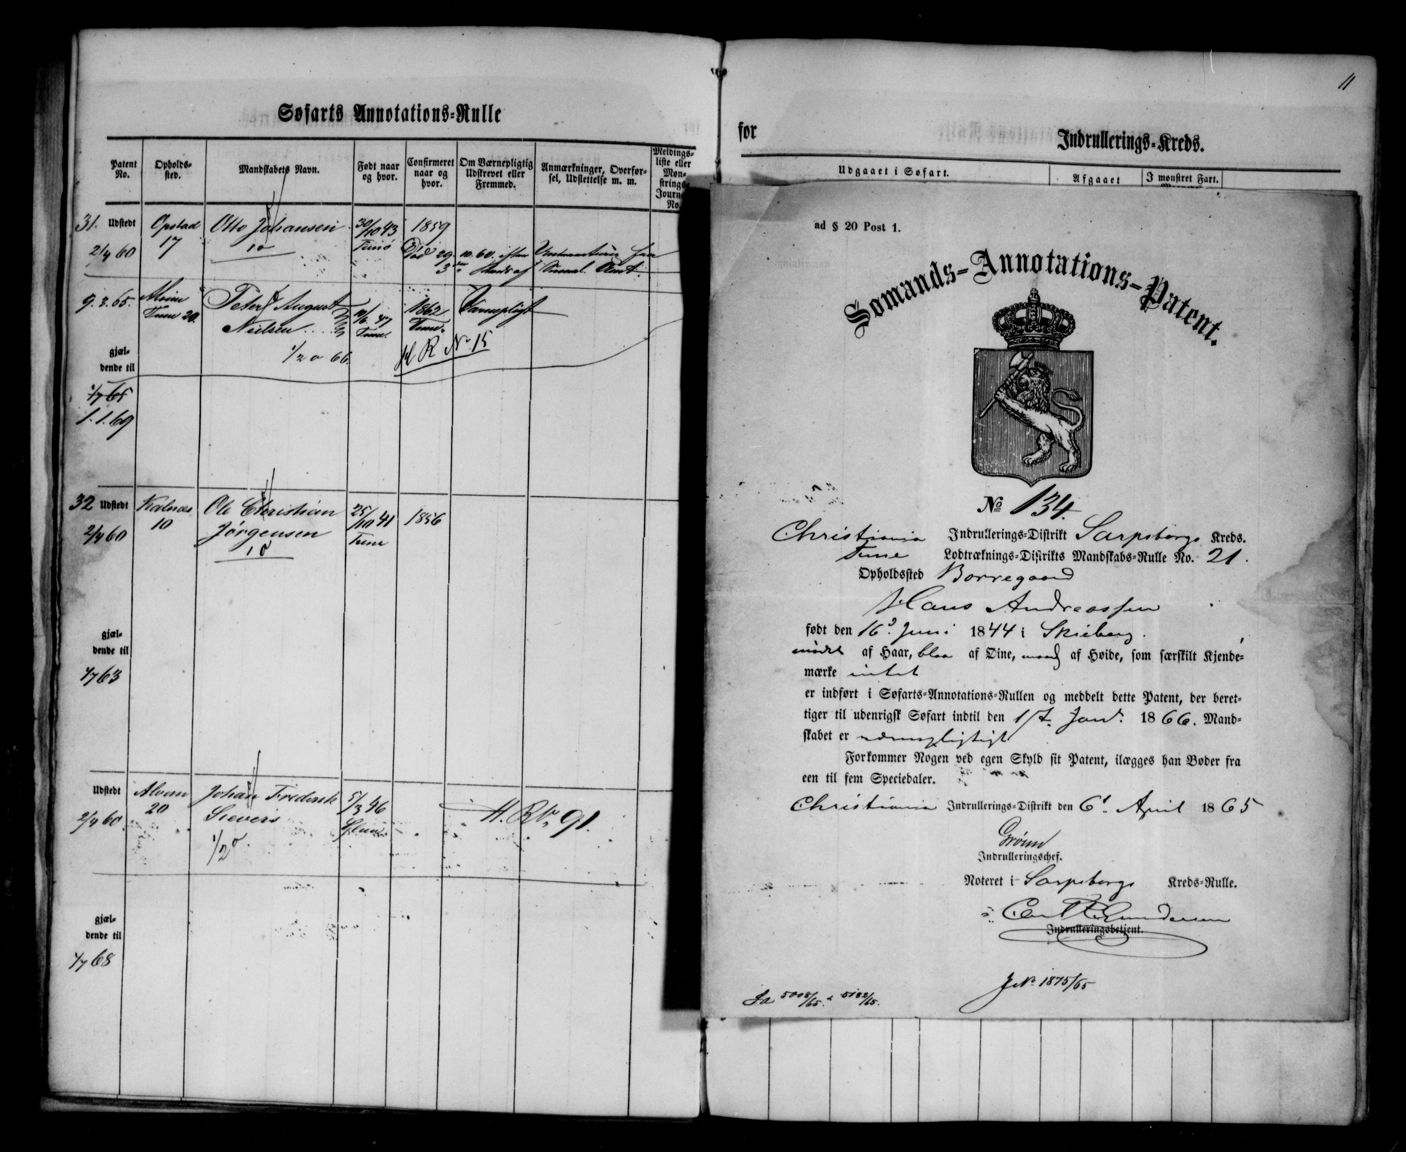 Søfarts Annotations-Rulle
Patent No.
Opholds-sted.
Mandskabets Navn.
Født naar og hvor.
Confirmeret naar og hvor.
Om Værnepligtig Udskrevet eller Fremmed.
Anmærkninger, Overfør-sel, Udslettelse m. m.
Meldings-liste eller Møn-strings-Journal No.
31. Udstedt
2/4 60
Opstad
17
Otto Johansen
10
30/10 43
Tunø
1859
Død 29/3
10.60. efter
9.3.65.
Alvim
Tune 20.
Peter August
Nielsen
1/2 0 66.
47
Tune
1862
Tune.
Værnepligt
H R No 15
gjæl-
dende til
1/7 65
1.1.69
32 Udstedt
2/4 60
Kalnæs
10
Ole Christian
Jørgensen
10
25/10 41
Tune
1856
gjæl-
dende til
1/7 63
Udstedt
2/4 60
Alvim
20
Johan Frederik
Sievers
1/2 0
5/3 46
H. R No 91.
gjæl-
dende til
1/7 68
11
for Indrullerings-Kreds.
Udgaaet i Søfart.
Afgaaet
I mønstret Fart.
ad § 20 Post 1.
Sømands-Annotations-Patent.
No 134.
Christiania Indrullerings-Distrikt Sarpsborgs Kreds.
Tune Lodtræknings-Distrikts Mandskabs-Rulle No. 21.
Opholdssted Borregaard
Hans Andreassen
født den 16d Juni 1844 i Skieberg.
mørkt af Haar, blaa af Øine, maadl af Høide, som særskilt Kjende-
mærke intet
er indført i Søfarts-Annotations-Rullen og meddelt dette Patent, der beret-
tiger til udenrigsk Søfart indtil den 1st Janr. 1866. Mand-
skabet er værnepligtigt
Forkommer Nogen ved egen Skyld sit Patent, ilægges han Bøder fra
een til fem Speciedaler.
Christiania Indrullerings-Distrikt den 6t April 1865
Grønn
Indrulleringschef.
Noteret i Sarpsborgs Kreds-Rulle.
Gundersen
Indrulleringsbetjent.
J No 1875/65
Ja 5008/65 & 5182/65.